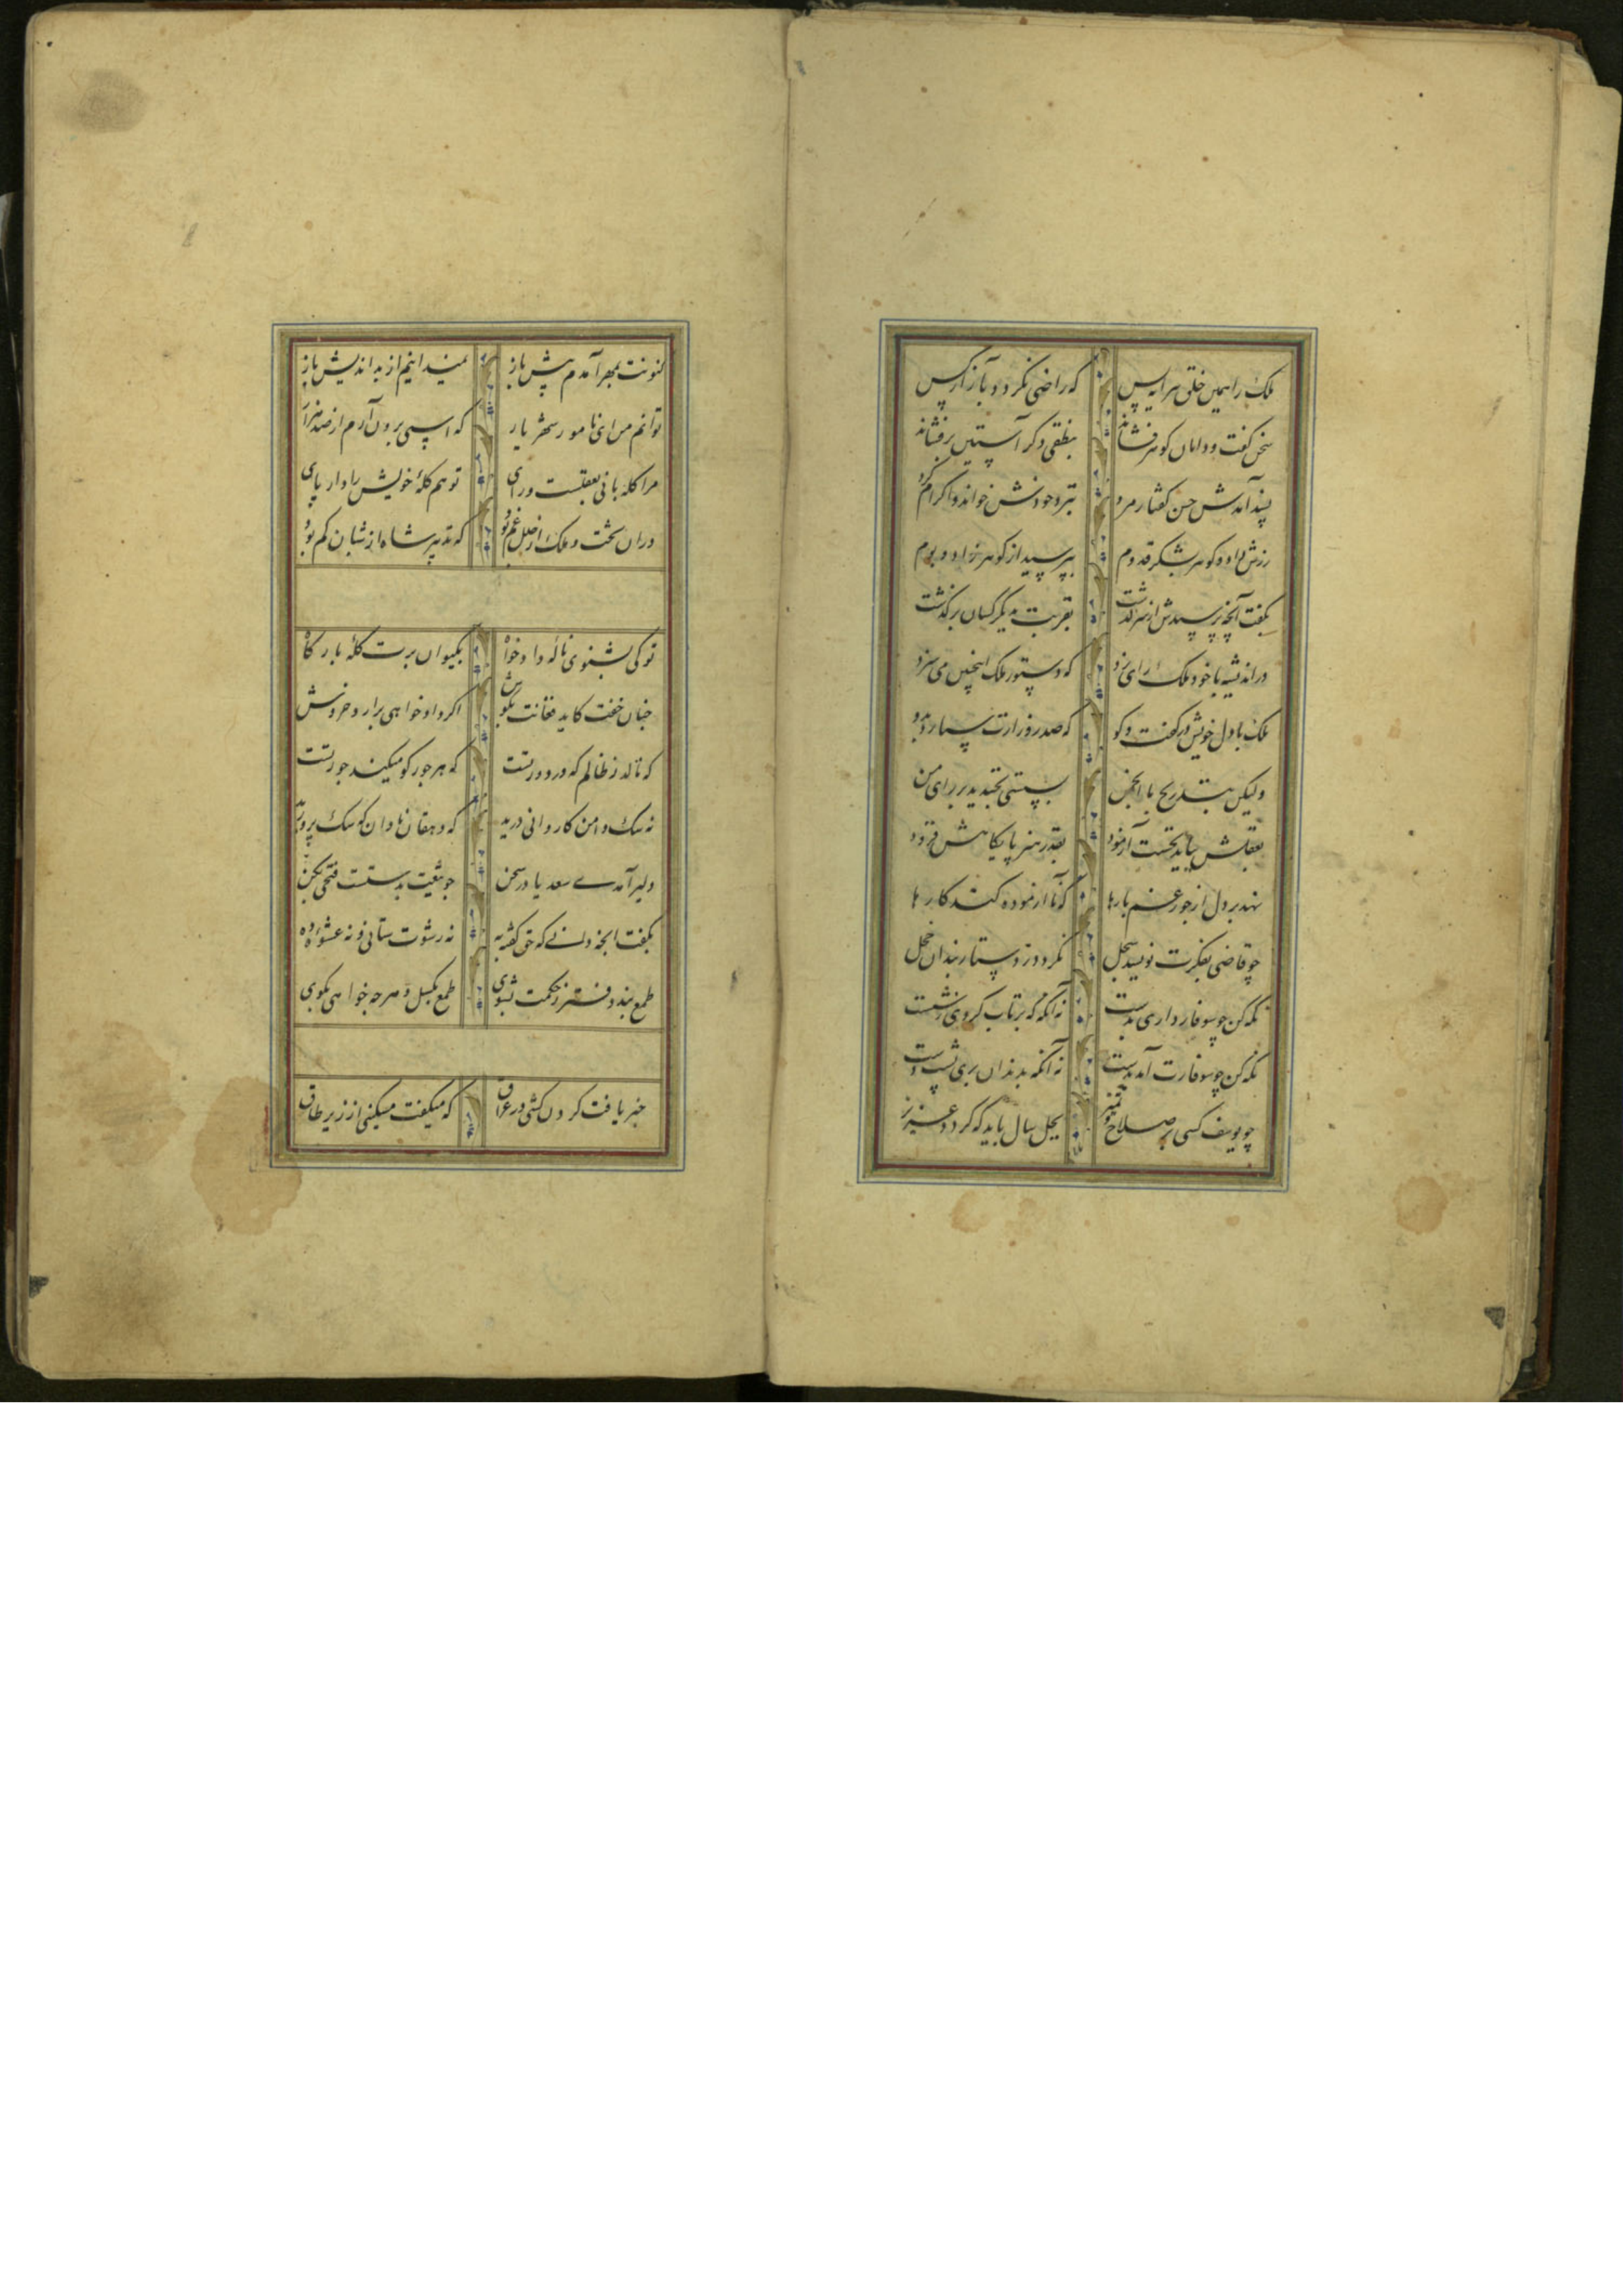 ملک را همین خلق سرایه پس که راضی نکردد بآزار کس
سخن کفت و دامان کوهر فشاند بنطقی دکر آستین برفشاند
پسند آمدش حسن کفتار مرد بنزد خودش خواند و اکرام کرد
زرش داد و کوهر بشکر قدوم بپرسیدش از کوهر زاد و بوم
بکفت آنچه پرسیدش از سرکذشت بقربت ز دیکر کسان برکذشت
در اندیشه با خود ملک رای زد که دستور ملک اینچنین می سزد
ملک با دل خویش در کفت و کو که صدر وزارت سپارد بدو
ولیکن بتدریج تا انجمن بسستی نخندند بر رای من
بعقلش بباید نخست آزمود بقدر هنر پایکاهش فزود
نهد بر دل از جور غم بارها که نا آزموده کند کارها
چو قاضی بفکرت نویسد سجل نکردد ز دستاربندان خجل
نکه کن چو سوفار داری بدست نه آنکه که پرتاب کردی ز شست
نکه کن چو سوفارت آمد بدست نه آنکه بدندان بری پشت دست
چو یوسف کسی در صلاح و تمیز بچل سال باید که کردد عزیز
کنونت بمهر آمدم پیش باز نمیدانیم از بداندیش باز
توانم من ای نامور شهریار که اسپی برون آرم از صد هزار
مرا کله بانی بعقلست و رای تو هم کلهٔ خویش را دار پای
در ان تخت و ملک از خلل غم بود که تدبیر شاه از شبان کم بود
تو کی بشنوی نالهٔ دادخواه بکیوان برت کلهٔ بارکاه
چنان خفت کاید فغانت بکوش اکر دادخواهی برارد خروش
که نالد ز ظالم که در دور تست که هر جور کو میکند جور تست
نه سک دامن کاروانی درید که دهقان نادان که سک پرورید
دلیر آمدے سعدیا در سخن چو تیغت بدستست فتحی بکن
بکفت انچه دانے که حق کفته به نه رشوت ستانی و نه عشوه ده
طمع بند و دفتر ز حکمت بشوی طمع بکسل و هرچه خواهی بکوی
خبر یافت کردن کشی در عراق که میکفت مسکینی از زیر طاق